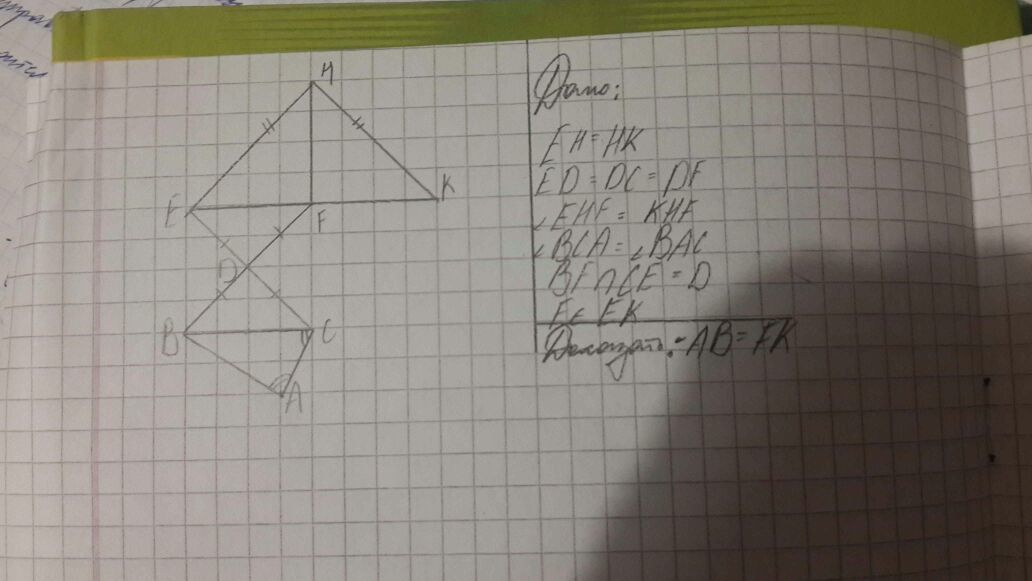 H
E
F
K
D
B
C
A
Дано:
EH = HK
ED = DC = DF
∠EHF = KHF
∠BCA = ∠BAC
BF ∩ CE = D
F ∈ EK
Доказать: AB = FK